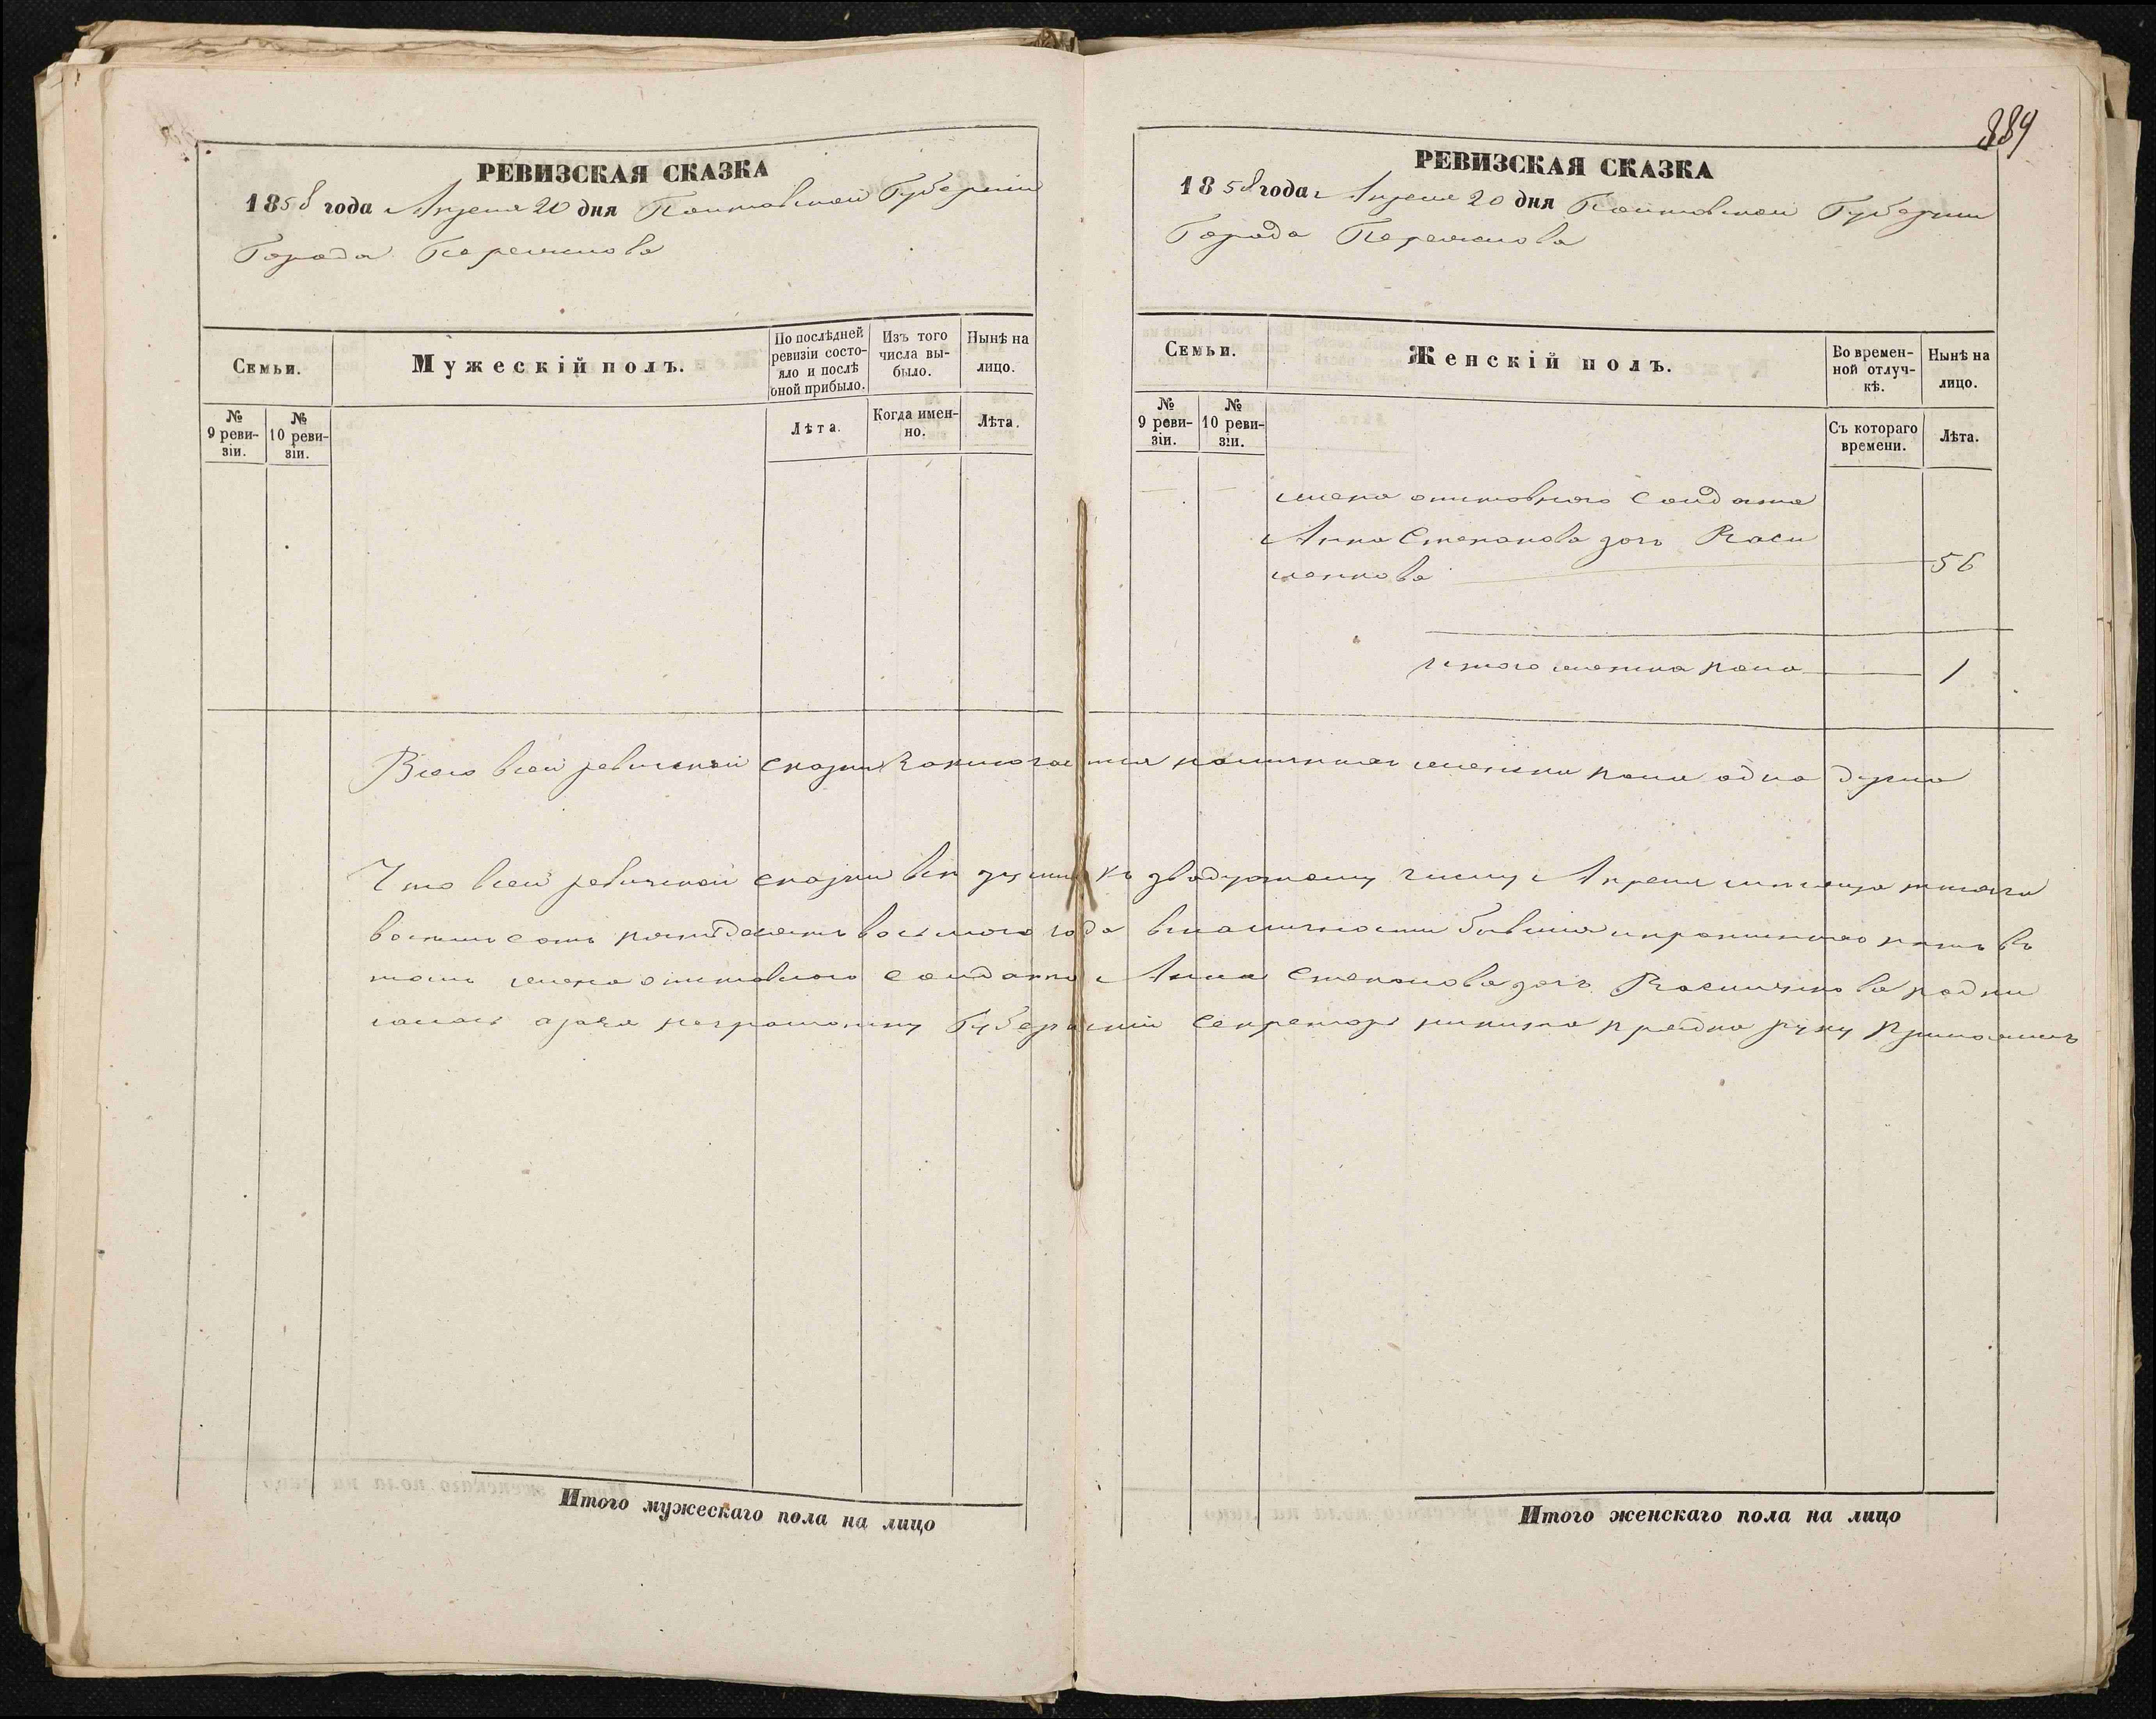 РЕВИЗСКАЯ СКАЗКА
1858 года Апреля 20 дня Полтавской Губернии
Города Переяслова
Семьи.
Мужескій полъ.
По послѣдней ревизіи состо-
яло и послѣ
оной прибыло.
Изъ того
числа вы-
было.
Нынѣ на
лицо.
№
9 реви-
зіи.
№
10 реви-
зіи.
Лѣта.
Когда имен-
но.
Лѣта.
Итого мужескаго пола на лицо
884
РЕВИЗСКАЯ СКАЗКА
1858 года Апреля 20 дня Полтавской Губернии
Города Переяслова
Семьи.
Женскій полъ.
Во времен-
ной отлуч-
кѣ.
Нынѣ на
лицо.
№
9 реви-
зіи.
№
10 реви-
зіи.
Съ котораго
времени.
Лѣта.
жена отставного Солдата
Анна Степанова дочь
56
итого женска пола 1
Всего всей ревизской сказки заключается наличных женска пола одна душа
Что всей ревизской сказки все души къ двадцатому числу Апреля месяца тысяча
восемьсотъ пятьдесятъ восьмого года вналичности
жена отставного солдата Анна Степанова дочь
Губернский Секретарь руку приложилъ
Итого женскаго пола на лицо